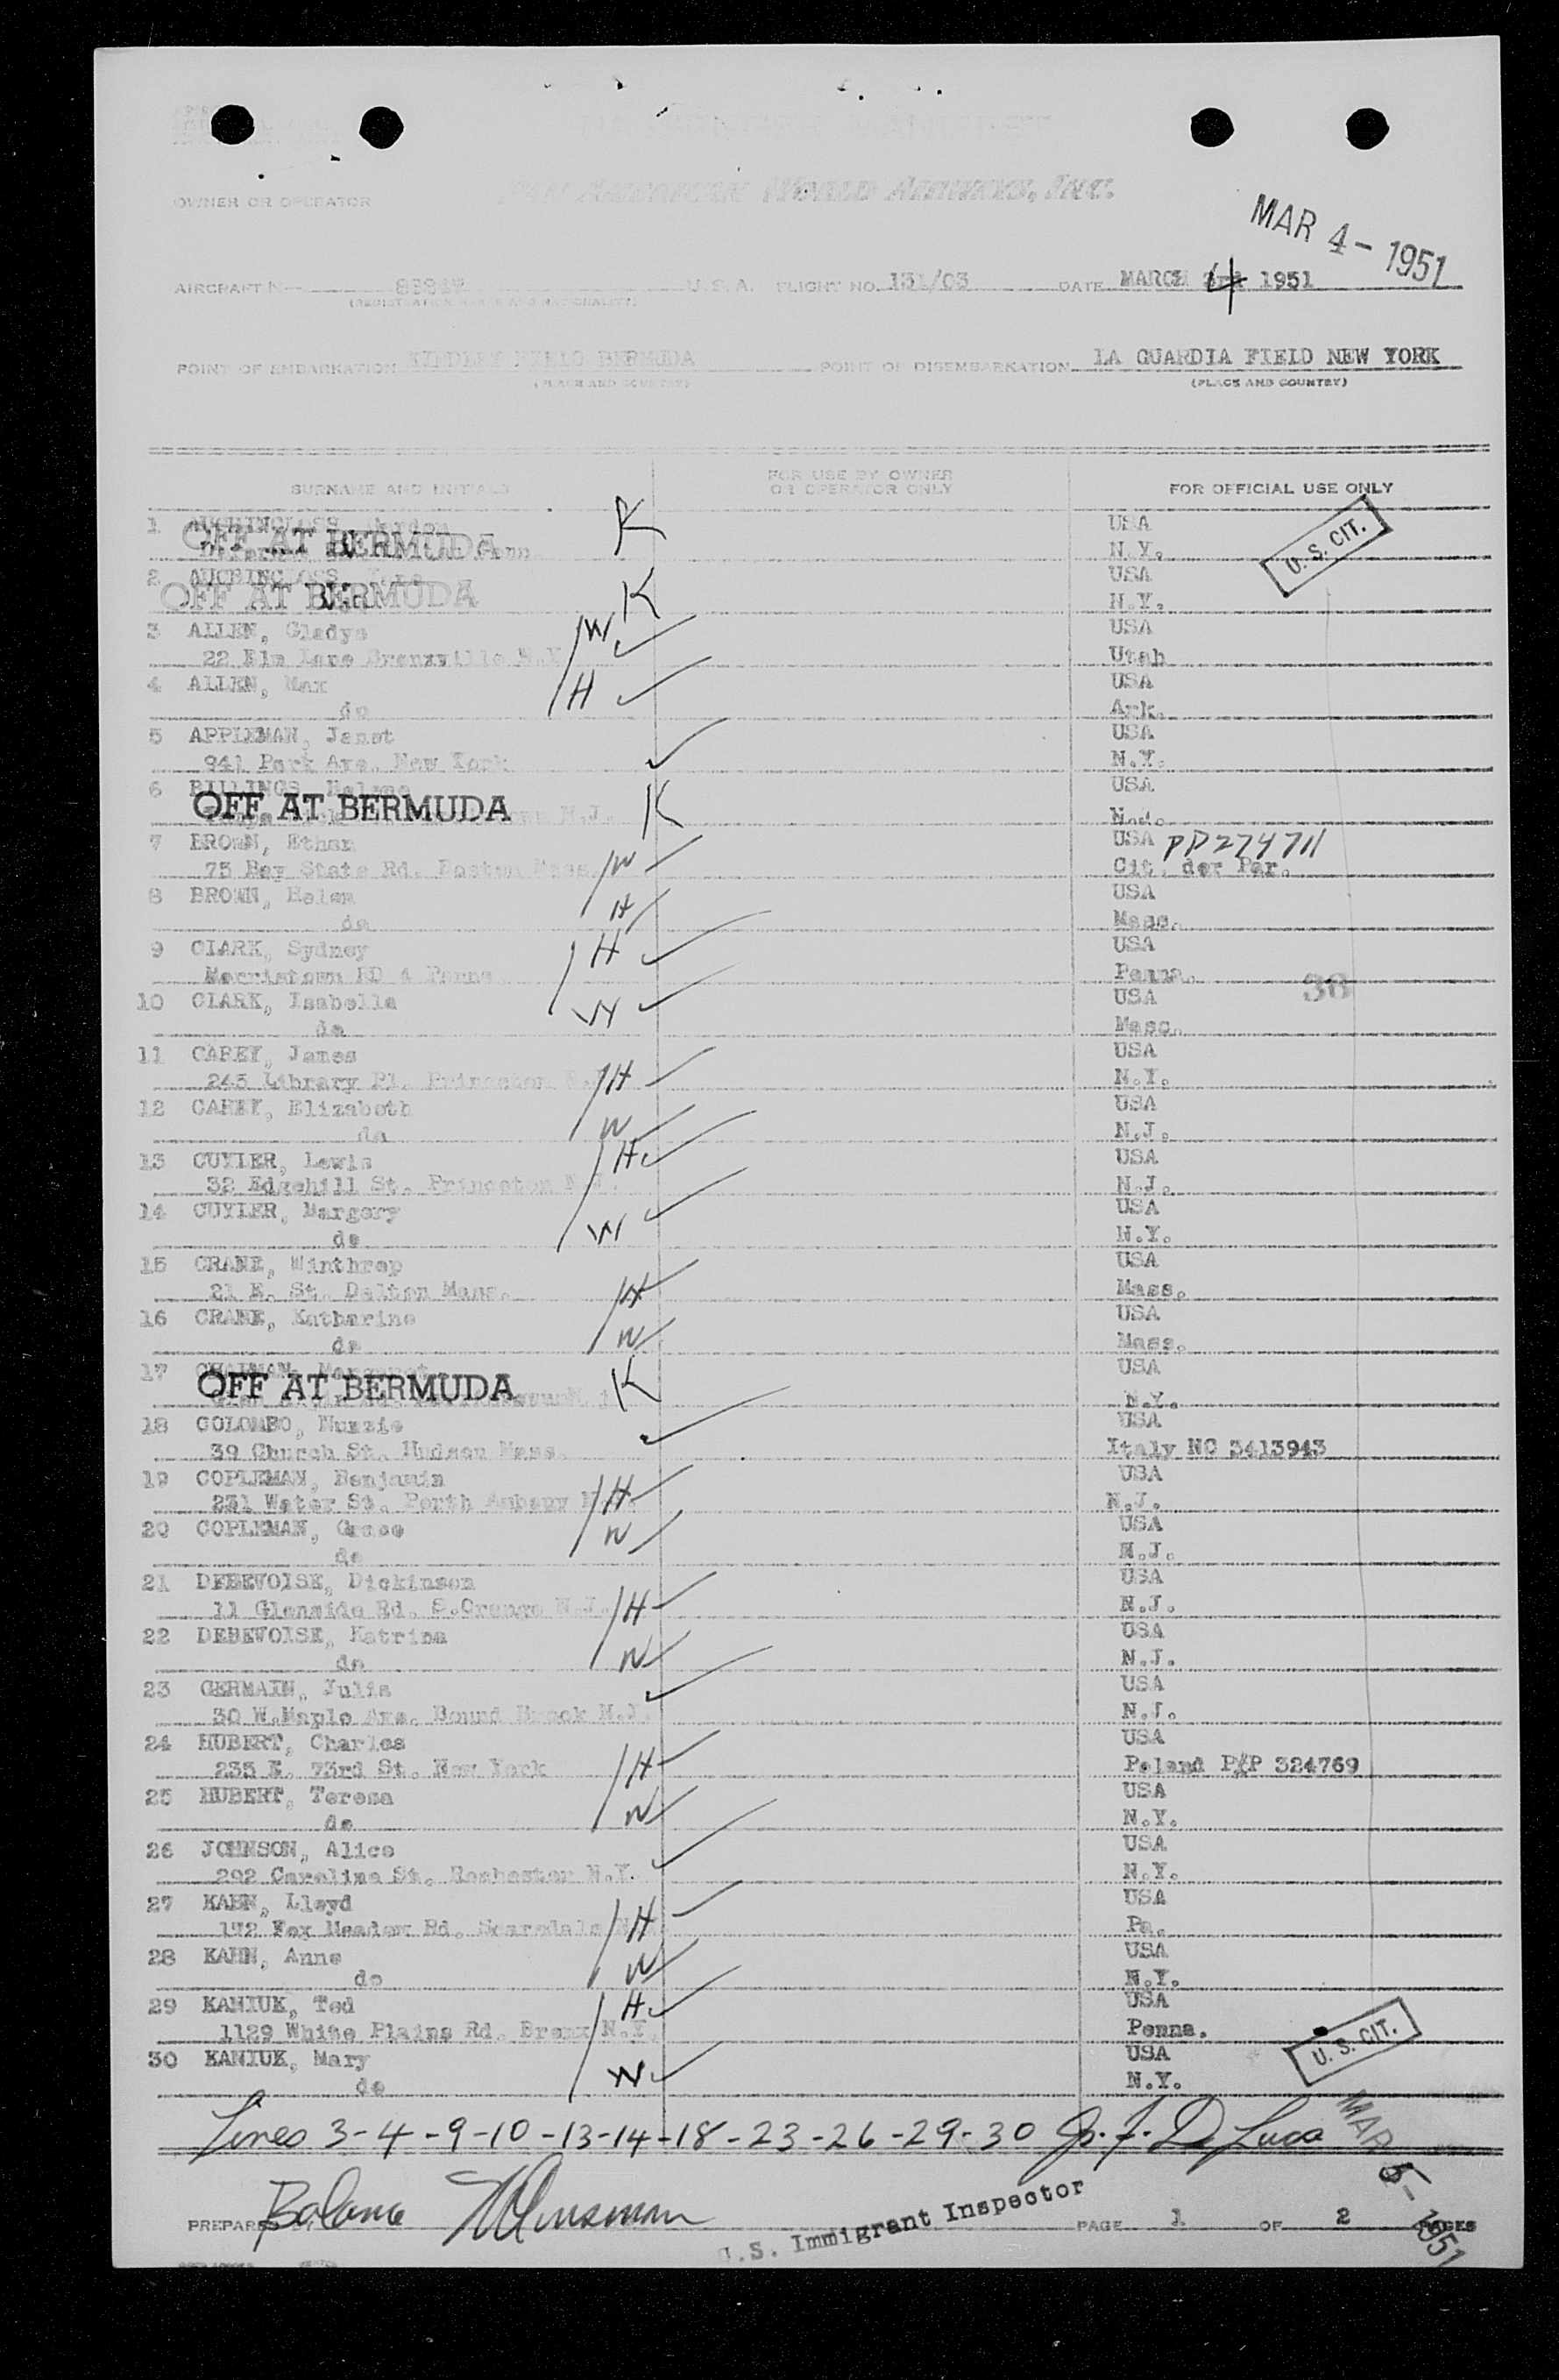 OWNER OR OPERATOR PAN AMERICAN WORLD AIRWAYS, INC.
MAR 4- 1951
AIRCRAFT N U.S.A. FLIGHT NO. 131/03 DATE MARCH 3rd 4 1951
(REGISTRATION MARKS AND NATIONALITY)
POINT OF EMBARKATION KINDLEY FIELD BERMUDA POINT OF DISEMBARKATION LA GUARDIA FIELD NEW YORK
(PLACE AND COUNTRY) (PLACE AND COUNTRY)
SURNAME AND INITIALS FOR USE BY OWNER OR OPERATOR ONLY FOR OFFICIAL USE ONLY
1 AUCHINCLOSS, K USA
OFF AT BERMUDA N.Y. U. S. CIT.
2 AUCHINCLOSS, K USA
OFF AT BERMUDA N.Y.
3 ALLEN, Gladys W USA
22 Elm Lane Bronxville N.Y. Utah
4 ALLEN, Max H USA
do Ark.
5 APPLEMAN, Janet USA
941 Park Ave. New York N.Y.
6 BILLINGS, K USA
OFF AT BERMUDA N.J.
7 BROWN, Ethan W USA PP274711
75 Bay State Rd. Boston Mass. Cit. der Par.
8 BROWN, Helen H USA
do Mass.
9 CLARK, Sydney H USA
Norristown RD 4 Penna. Penna.
36
10 CLARK, Isabella W USA
do Mass.
11 CAREY, James H USA
245 Library Pl. Princeton N.Y.
12 CAREY, Elizabeth W USA
do N.J.
13 CUYLER, Lewis H USA
32 Edgehill St. Princeton N.J. N.J.
14 CUYLER, Margery W USA
do N.Y.
15 CRANE, Winthrop H USA
21 E. St. Dalton Mass. Mass.
16 CRANE, Katharine W USA
do Mass.
17 Margaret K USA
OFF AT BERMUDA N.Y.
18 COLOMBO, Nunzio USA
39 Church St. Hudson Mass. Italy NC 3413943
19 COPLEMAN, Benjamin H USA
231 Water St. Perth Amboy N.J.
20 COPLEMAN, Grace W USA
do N.J.
21 DEBEVOISE, Dickinson USA
11 Glenside Rd. S.Orange N.J. H N.J.
22 DEBEVOISE, Katrina USA
do W N.J.
23 GERMAIN, Julia USA
30 W.Maple Ave. Bound Brook N.J. N.J.
24 HUBERT, Charles USA
235 E. 73rd St. New York H Poland PP 324769
25 HUBERT, Teresa W USA
do N.Y.
26 JOHNSON, Alice USA
292 Carolina St. Rochester N.Y. N.Y.
27 KAHN, Lloyd H USA
172 Fox Meadow Rd. Scarsdale Pa.
28 KAHN, Anne W USA
do N.Y.
29 KANIUK, Ted H USA
1129 White Plains Rd. Bronx N.Y. Penna.
30 KANIUK, Mary W USA U. S. CIT.
do N.Y.
Lines 3-4-9-10-13-14-18-23-26-29-30 J. F. De Luca
MAR 5- 1951
PREPARED BY
U.S. Immigrant Inspector PAGE 1 OF 2 PAGES